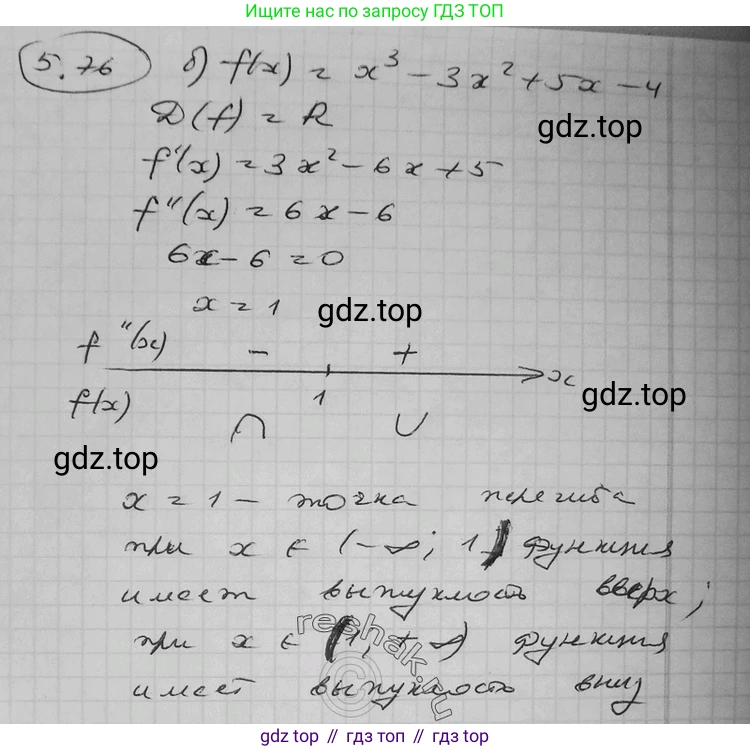 Ищите нас по запросу ГДЗ ТОП
5.76 б) f(x) = x³ - 3x² + 5x - 4
D(f) = R
gdz.top
f'(x) = 3x² - 6x + 5
f''(x) = 6x - 6
6x - 6 = 0
x = 1
gdz.top
f''(x) - + x
f(x) 1
gdz.top
∩ ∪
gdz.top
x = 1 - точка перегиба
при x ∈ (-∞; 1) функция
имеет выпуклость вверх;
при x ∈ (1; +∞) функция
имеет выпуклость вниз
reshak.ru
gdz.top // гдз.топ // gdz.top // гдз.топ